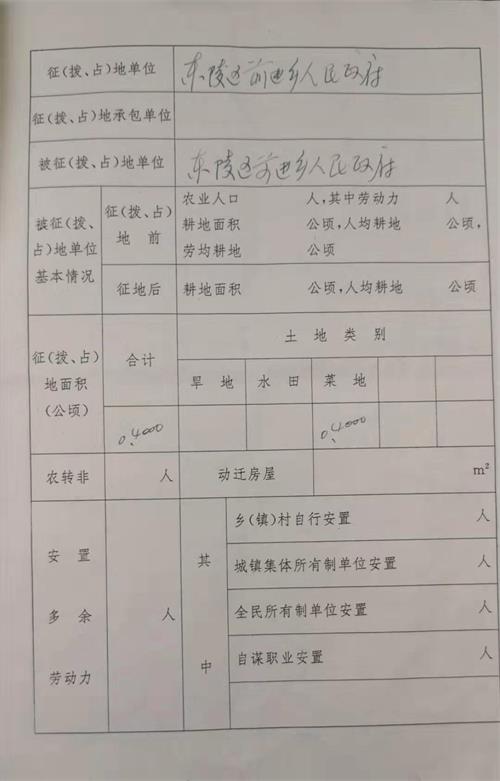 征(拨、占)地单位 东陵区前进乡人民政府
征(拨、占)地承包单位
被征(拨、占)地单位 东陵区前进乡人民政府
被征(拨、占)地单位基本情况
征(拨、占)地前
农业人口 人,其中劳动力 人
耕地面积 公顷,人均耕地 公顷,
劳均耕地 公顷
征地后 耕地面积 公顷,人均耕地 公顷
征(拨、占)地面积(公顷)
合计 土地类别
旱地 水田 菜地
0.4000 0.4000
农转非 人 动迁房屋 m²
安置多余劳动力 人 其中
乡(镇)村自行安置 人
城镇集体所有制单位安置 人
全民所有制单位安置 人
自谋职业安置 人